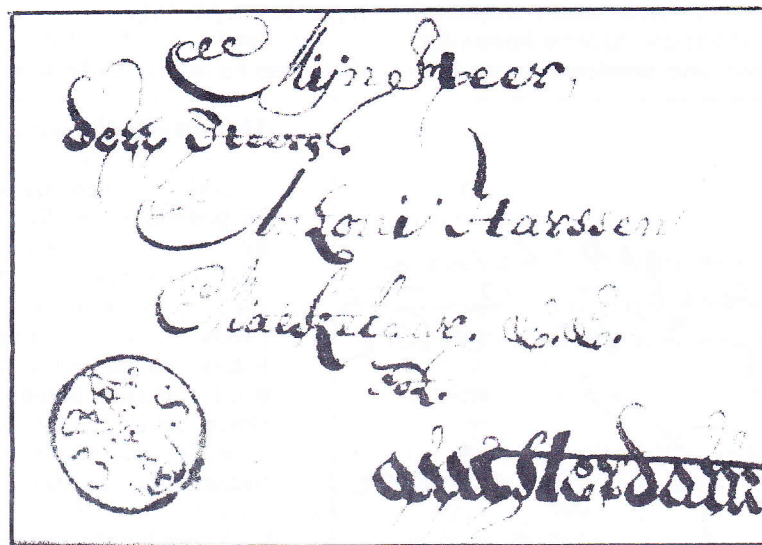 Mijn Heer,
den Heer,
Antoni Harssen
Maekelaar. &.&.
Tot.
Amsterdam